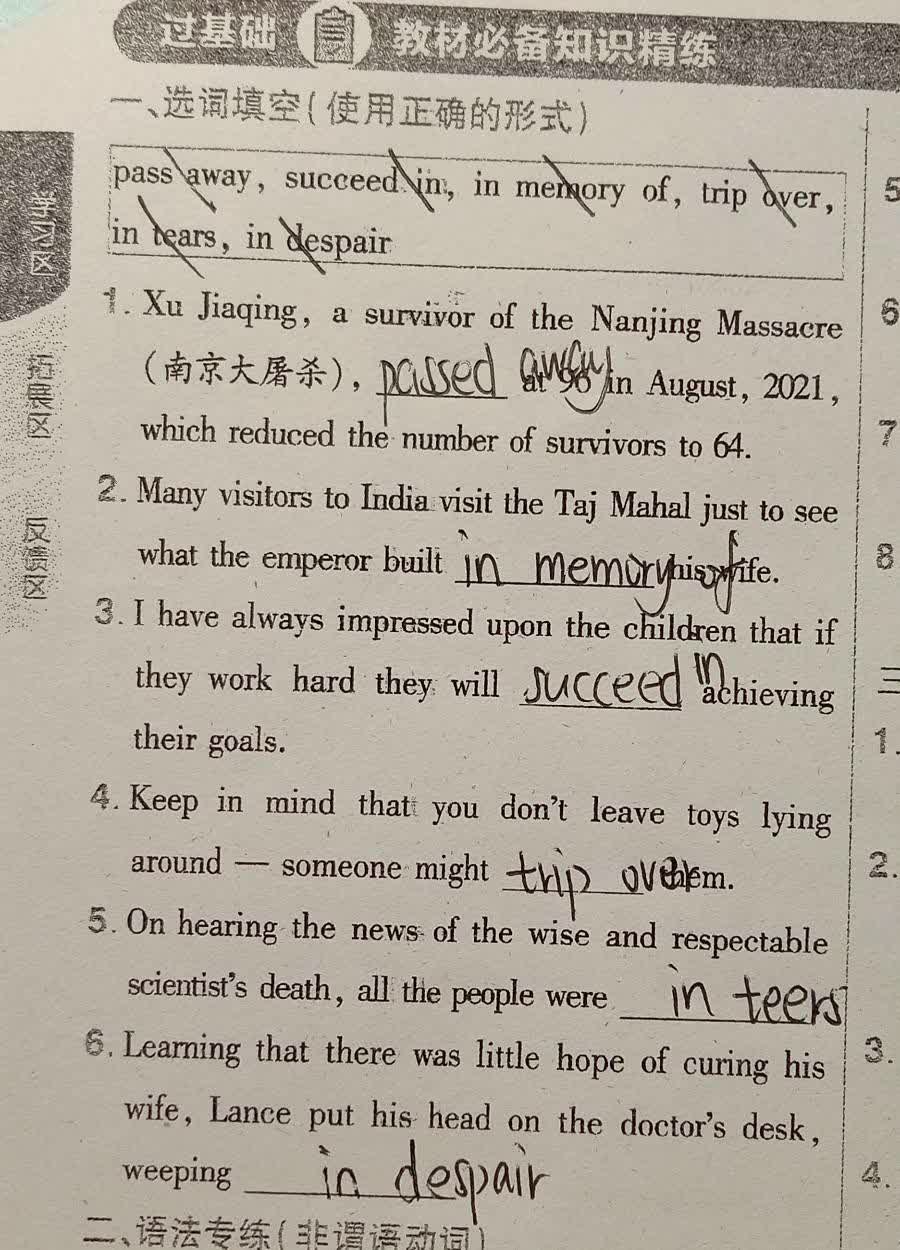 过基础 教材必备知识精练
一、选词填空(使用正确的形式)
pass away, succeed in, in memory of, trip over,
in tears, in despair
1. Xu Jiaqing, a survivor of the Nanjing Massacre
(南京大屠杀), passed away at 96 in August, 2021,
which reduced the number of survivors to 64.
2. Many visitors to India visit the Taj Mahal just to see
what the emperor built in memory of his wife.
3. I have always impressed upon the children that if
they work hard they will succeed in achieving
their goals.
4. Keep in mind that you don't leave toys lying
around — someone might trip over them.
5. On hearing the news of the wise and respectable
scientist's death, all the people were in teers
6. Learning that there was little hope of curing his
wife, Lance put his head on the doctor's desk,
weeping in despair
二、语法专练(非谓语动词)
学习区
拓展区
反馈区
5
6
7
8
三
1.
2.
3.
4.